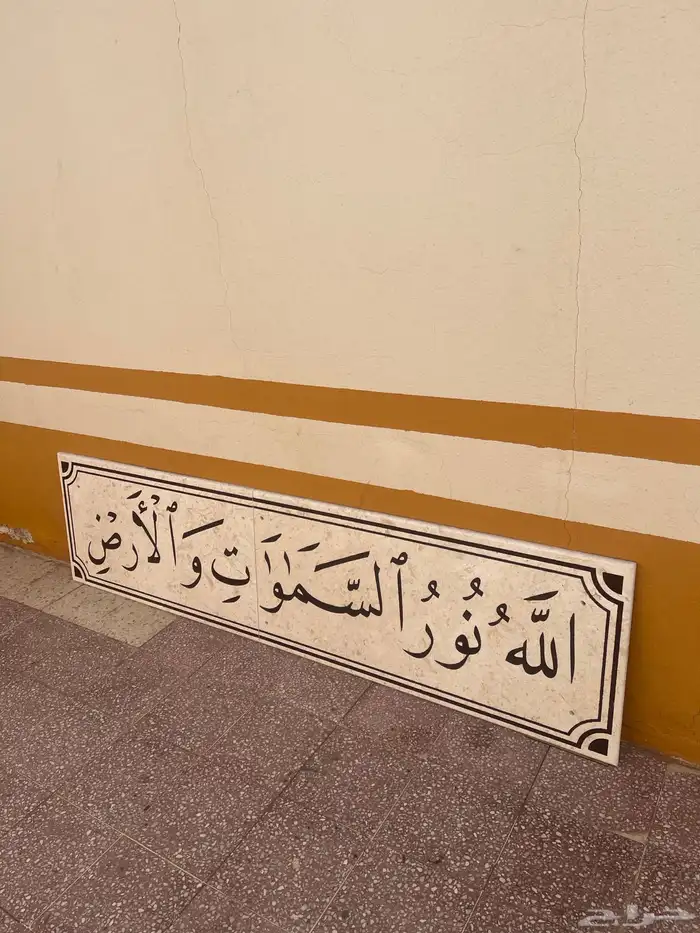 اللَّهُ نُورُ ٱلسَّمَٰوَٰتِ وَٱلْأَرْضِ
حراج